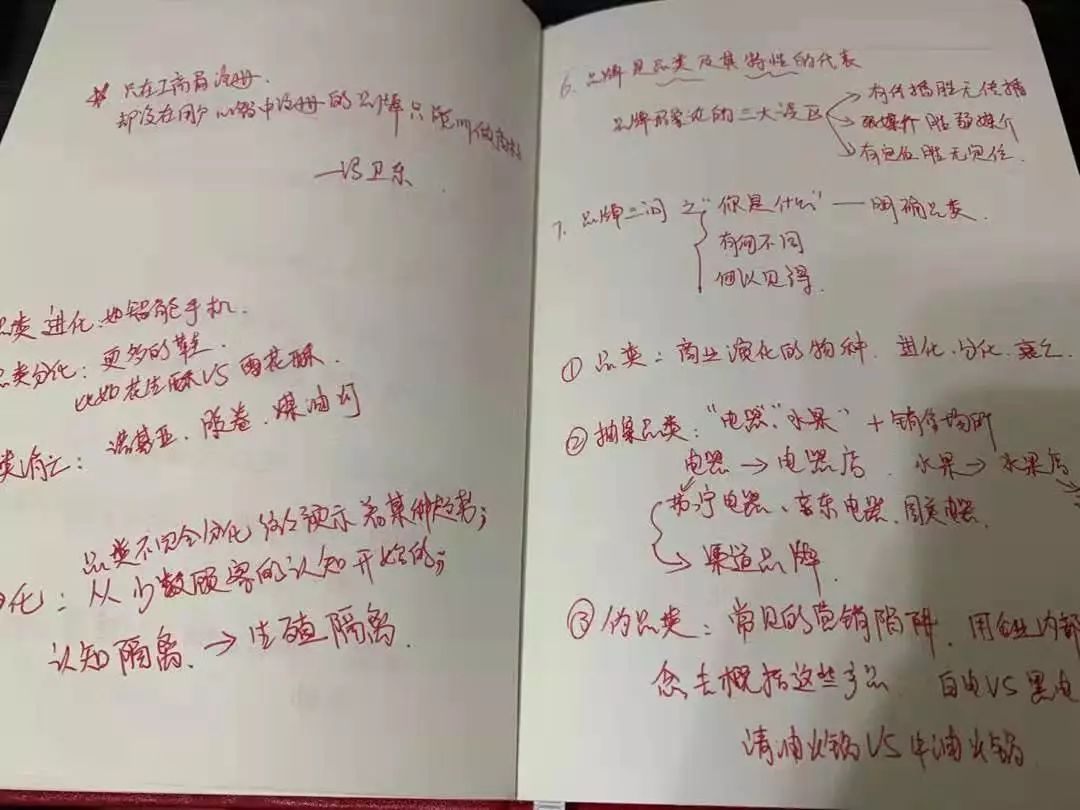 * 只在工商局注册.
却没在用户心智中注册的品牌只能叫做商标
—冯卫东.
品类进化:如智能手机.
品类分化:更多的鞋.
比如花生酥VS雪花酥.
类消亡:诺基亚.胶卷.煤油灯
品类不完全分化 往往预示着某种趋势;
化:从少数顾客的认知开始的;
认知隔离.→生殖隔离.
6.品牌是品类及其特性的代表
品牌形象论的三大误区 有传播胜无传播
强媒介胜弱媒介
有定位胜无定位.
7.品牌三问之"你是什么"—明确品类.
有何不同
何以见得.
① 品类:商业演化的物种.进化.分化.衰亡.
② 抽象品类:"电器""水果"+销售场所
电器→电器店.水果→水果店
苏宁电器、京东电器.国美电器.
→渠道品牌.
③ 伪品类:常见的营销陷阱.用企业内部
念去概括这些产品.白电VS黑电
清油火锅VS牛油火锅